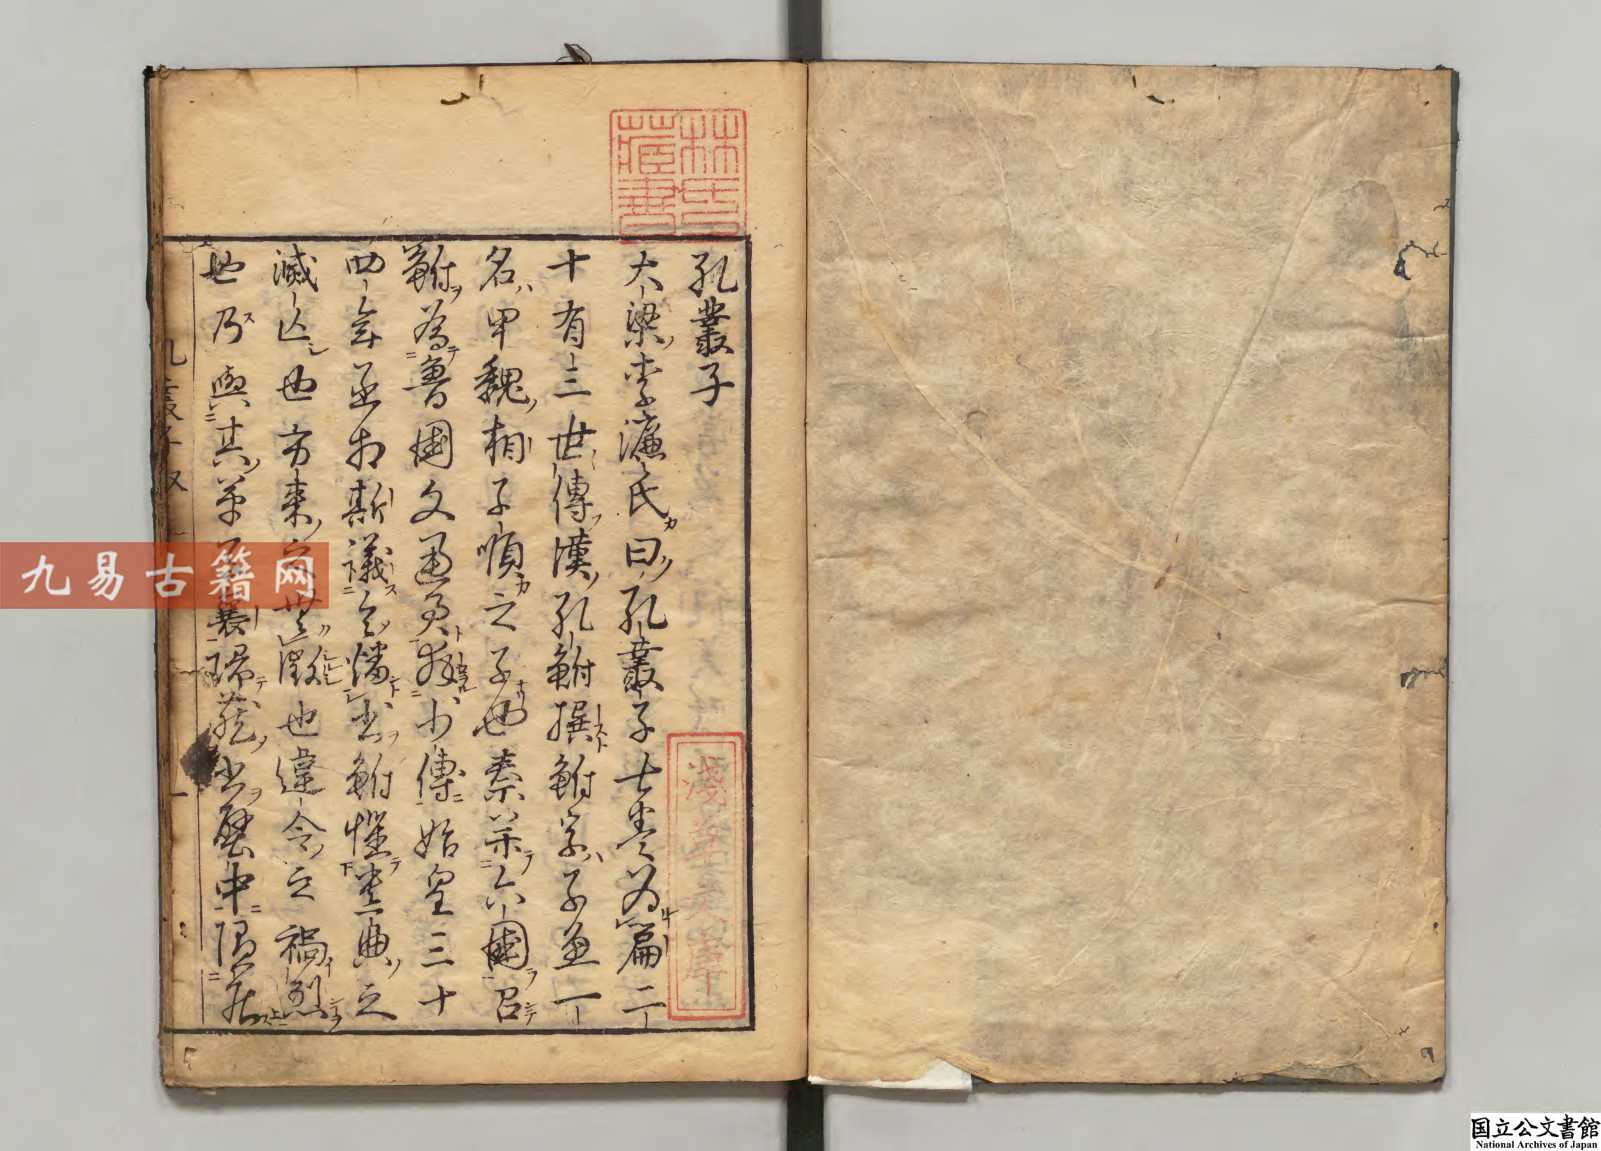 孔叢子
大梁李濂氏曰孔叢子七卷為篇二
十有三世傳漢孔鮒撰鮒字子魚一
名甲魏相子順之子也秦并六國召
鮒為魯國文通君拜少傅始皇三十
四年丞相斯議令燔書鮒懼遺典之
滅亡也方來之無徵也違令之禍烈
也乃與其弟子襄歸藏書壁中隱居
林氏
藏書
九易古籍网
国立公文書館
National Archives of Japan